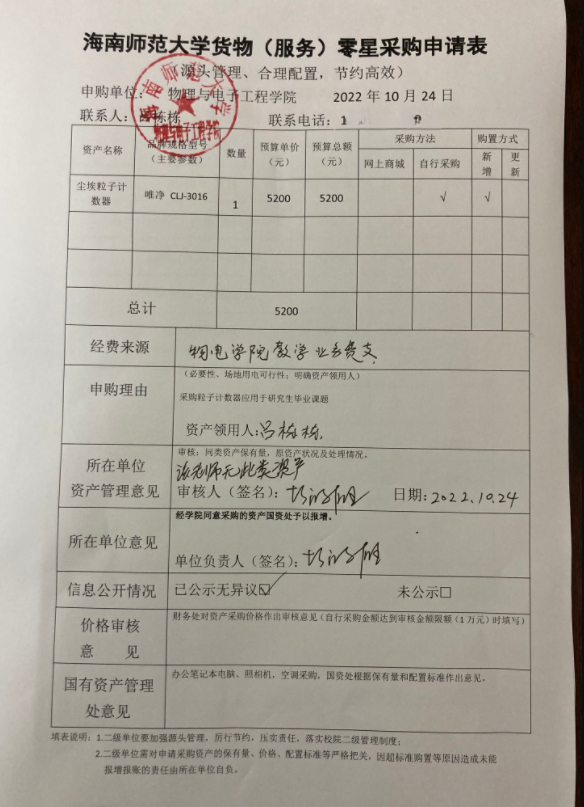 海南师范大学货物（服务）零星采购申请表
（源头管理、合理配置，节约高效）
申购单位： 物理与电子工程学院 2022 年 10 月 24 日
联系人：吕栋栋 联系电话：1
资产名称 品牌规格型号（主要参数） 数量 预算单价（元） 预算总额（元） 采购方法 购置方式
网上商城 自行采购 新增 更新
尘埃粒子计数器 唯净 CLJ-3016 1 5200 5200 √ √
总计 5200
经费来源 物电学院教学业务费支
申购理由 （必要性、场地用电可行性；明确资产领用人）
采购粒子计数器应用于研究生毕业课题
资产领用人:吕栋栋.
所在单位资产管理意见 审核：同类资产保有量，原资产状况及处理情况。
该老师无此类资产
审核人（签名）： 日期:2022.10.24
所在单位意见 经学院同意采购的资产国资处予以报增。
单位负责人（签名）：
信息公开情况 已公示无异议☑ 未公示□
价格审核意 见 财务处对资产采购价格作出审核意见（自行采购金额达到审核金额限额（1 万元）时填写）
国有资产管理处意见 办公笔记本电脑、照相机、空调采购，国资处根据保有量和配置标准作出意见。
填表说明：1.二级单位要加强源头管理，厉行节约，压实责任，落实校院二级管理制度；
2.二级单位需对申请采购资产的保有量、价格、配置标准等严格把关，因超标准购置等原因造成未能
报增报账的责任由所在单位自负。